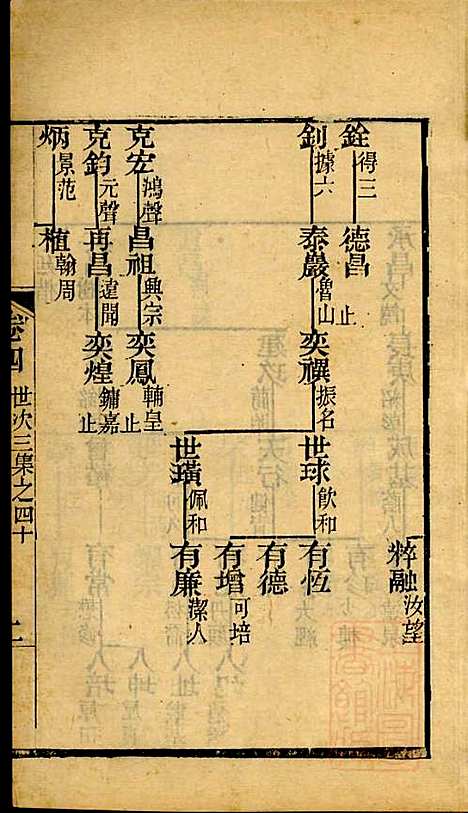 銓 得三 德昌 止
釗 據六 泰巖 魯山 奕禩 振名
世球 飲和 世璜 佩和
粹融 汝望
有恆
有德
有增 可培
有廉 潔人
克宏 鴻聲 昌祖 興宗 奕鳳 輔皇
克鈞 元聲 再昌 達聞 奕煌 鏞嘉 止
止
炳 景范 植 翰周
卷四 世次三集之四十 二